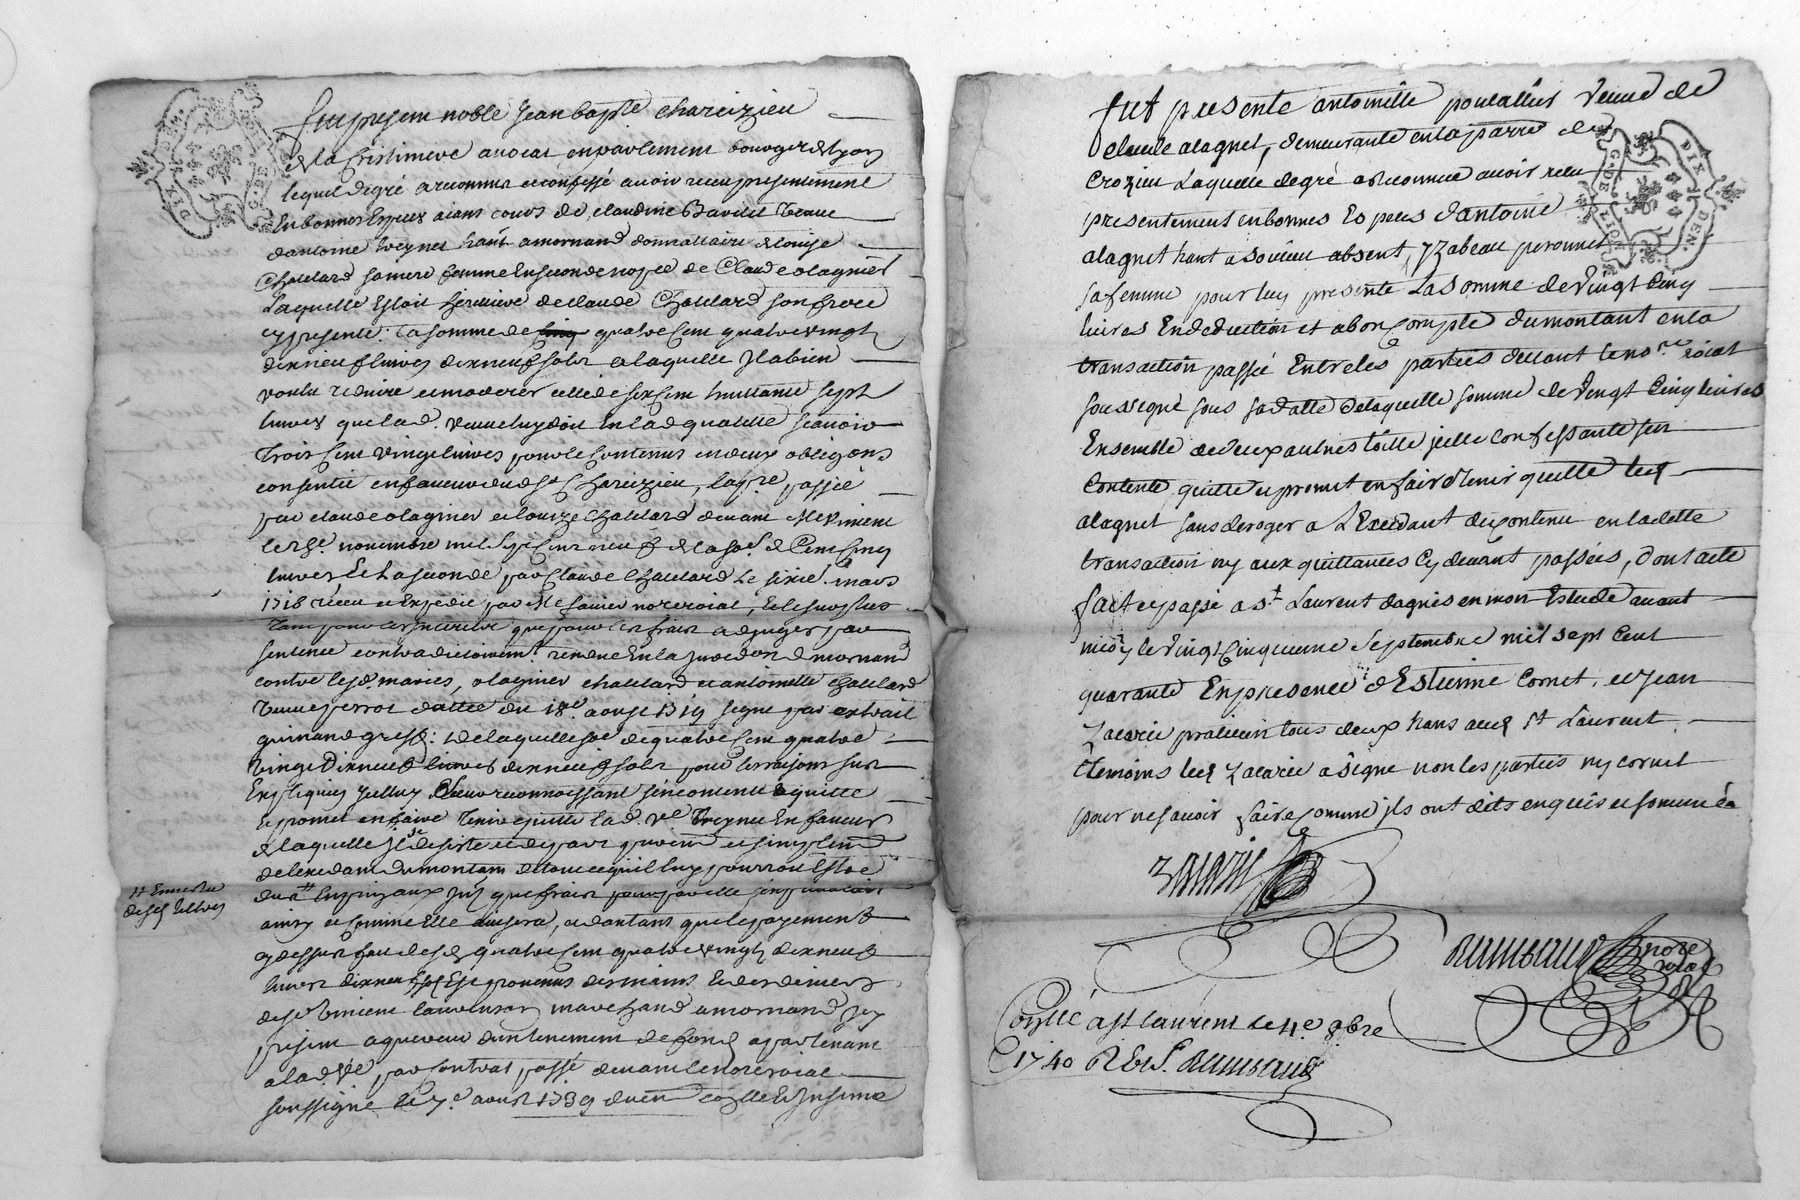 fut present noble Jean bapte Chareizieu
de la Cristiniere avocat en parlement bourgeois de Lyon
lequel de gré a reconnu et confessé avoir receu presentement
en bonnes Especes aians cours de claudine veuve
d'antoine treynet hant a mornand donnattaire de louise
Chatelard sa mere femme en seconde nopce de Claude olagnier
Laquelle Estoit heritiere de claude Chatelard son frere
cy presente: la somme de quatre cent quatre vingt
dix neuf livres dix neuf sols a laquelle Il a bien
voulu reduire et moderer celle de six cent huittante sept
livres que lad. veuve luy doit en lad qualitté scavoir
Trois cent vingt livres pour le Contenus en deux obligaons
consentie en faveur dud sr Chareizieu, la pre passée
par claude olagnier et louize Chatelard devant Me
le novembre mil sept cent neuf de la so.e de Cent Cinq
livres Et la seconde par Claude Chatelard le sixie. mars
1718 receu et Expedié par Me no.re roial, Et le surplus
tant pour les interets que pour les frais adjugés par
sentence contradictoirem.t rendue en la Juridon de mornand
contre lesd. mariés, olagnier chatelard et antoinette chatelard
veuve perrot dattée du 18e aoust 1719 signe par extrait
guinand greff: de laquelle soe de quatre cent quatre
vingt Dix neuf livres dix neuf sols pour les raisons sus
Expliquées Icelluy sieur reconnoissant s'en contente et quitte
Et promet en faire tenir quitte lad. ve treynet En faveur
de laquelle Il se desiste et depart purem.t et simplem.t
de l'excedant du montant de tout ce qu'il luy pourroit Estre
du en principaux Int. que frais pour par elle s'en prevaloir
ainsy et comme Elle avisera, et d'autant que le payement
cy dessus fait desd quatre cent quatre vingt dix neuf
livres dix neuf sols Est provenus des mains Et des deniers
de sr vincent marchand a mornand Icy
present acquereur d'un tenement de fond apartenant
a lad ve par Contrat passé devant le no.re roial
soussigné le 7e aoust 1739 duem
Ensuitte
desd
fut presente antoinette veuve de
claude alagnet, demeurante en la parre de
Crozieu Laquelle de gré a reconnue avoir receu
presentement en bonnes Especes d'antoine
alagnet hant a absent, Yzabeau peronnet
sa femme pour luy presente La somme de vingt Cinq
livres En deduction et a bon Compte du montant en la
transaction passé Entre les parties devant le no.re roial
soussigné sous sa datte de laquelle somme de vingt Cinq livres
Ensemble de deux autres icelle Confessante s'en
Contente, quitte et promet en fair tenir quitte led
alagnet sans deroger a L'Excedant du contenu en ladette
transaction ny aux quittances Cy devant passées, dont acte
fait et passé a st Laurent dagnis en mon Estude avant
midy le vingt Cinquieme Septembre mil sept Cent
quarante En presence d'Estienne Cornet, et Jean
Zacarie praticien tous deux hans aud st Laurent
temoins led Zacarie a signé non les parties ny cornet
pour ne scavoir faire comme ils ont dits enquis et sommés
Zacarie
no.re
roial
Conllé a st laurent le 4e 8bre
1740
G. DE LION
DIX DEN.